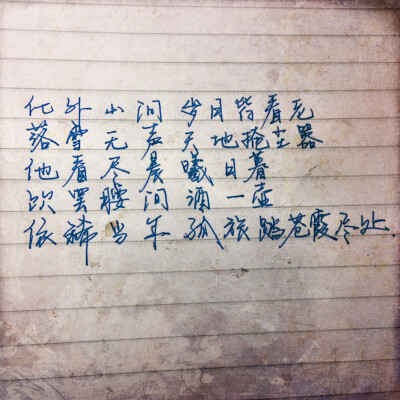 化外山间岁月皆看老
落雪无声天地掩尘嚣
他看尽晨曦日暮
饮罢腰间酒一壶
依稀当年孤旅踏苍霞尽处